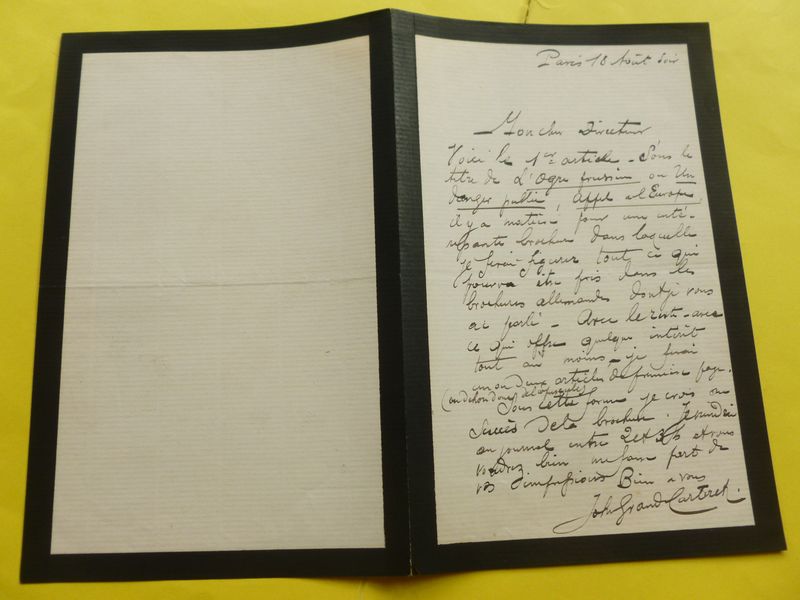 Paris 18 Août soir
Mon cher Directeur
Voici le 1er article - Sous le
titre de L'Ogre prussien ou Un
danger public, Appel à l'Europe,
il y a matière pour une inté-
ressante brochure dans laquelle
je ferai figurer tout ce qui
pourra être pris dans les
brochures allemandes dont je vous
ai parlé - Avec le reste - avec
ce qui offre quelque intérêt
tout au moins - je ferai
un ou deux articles de première page.
(ou dehors donc)
Sous cette forme je crois au
succès de la brochure. Je viendrai
au journal entre 2 et 3h et vous
voudrez bien me faire part de
vos impressions Bien à vous
John Grand-Carteret.